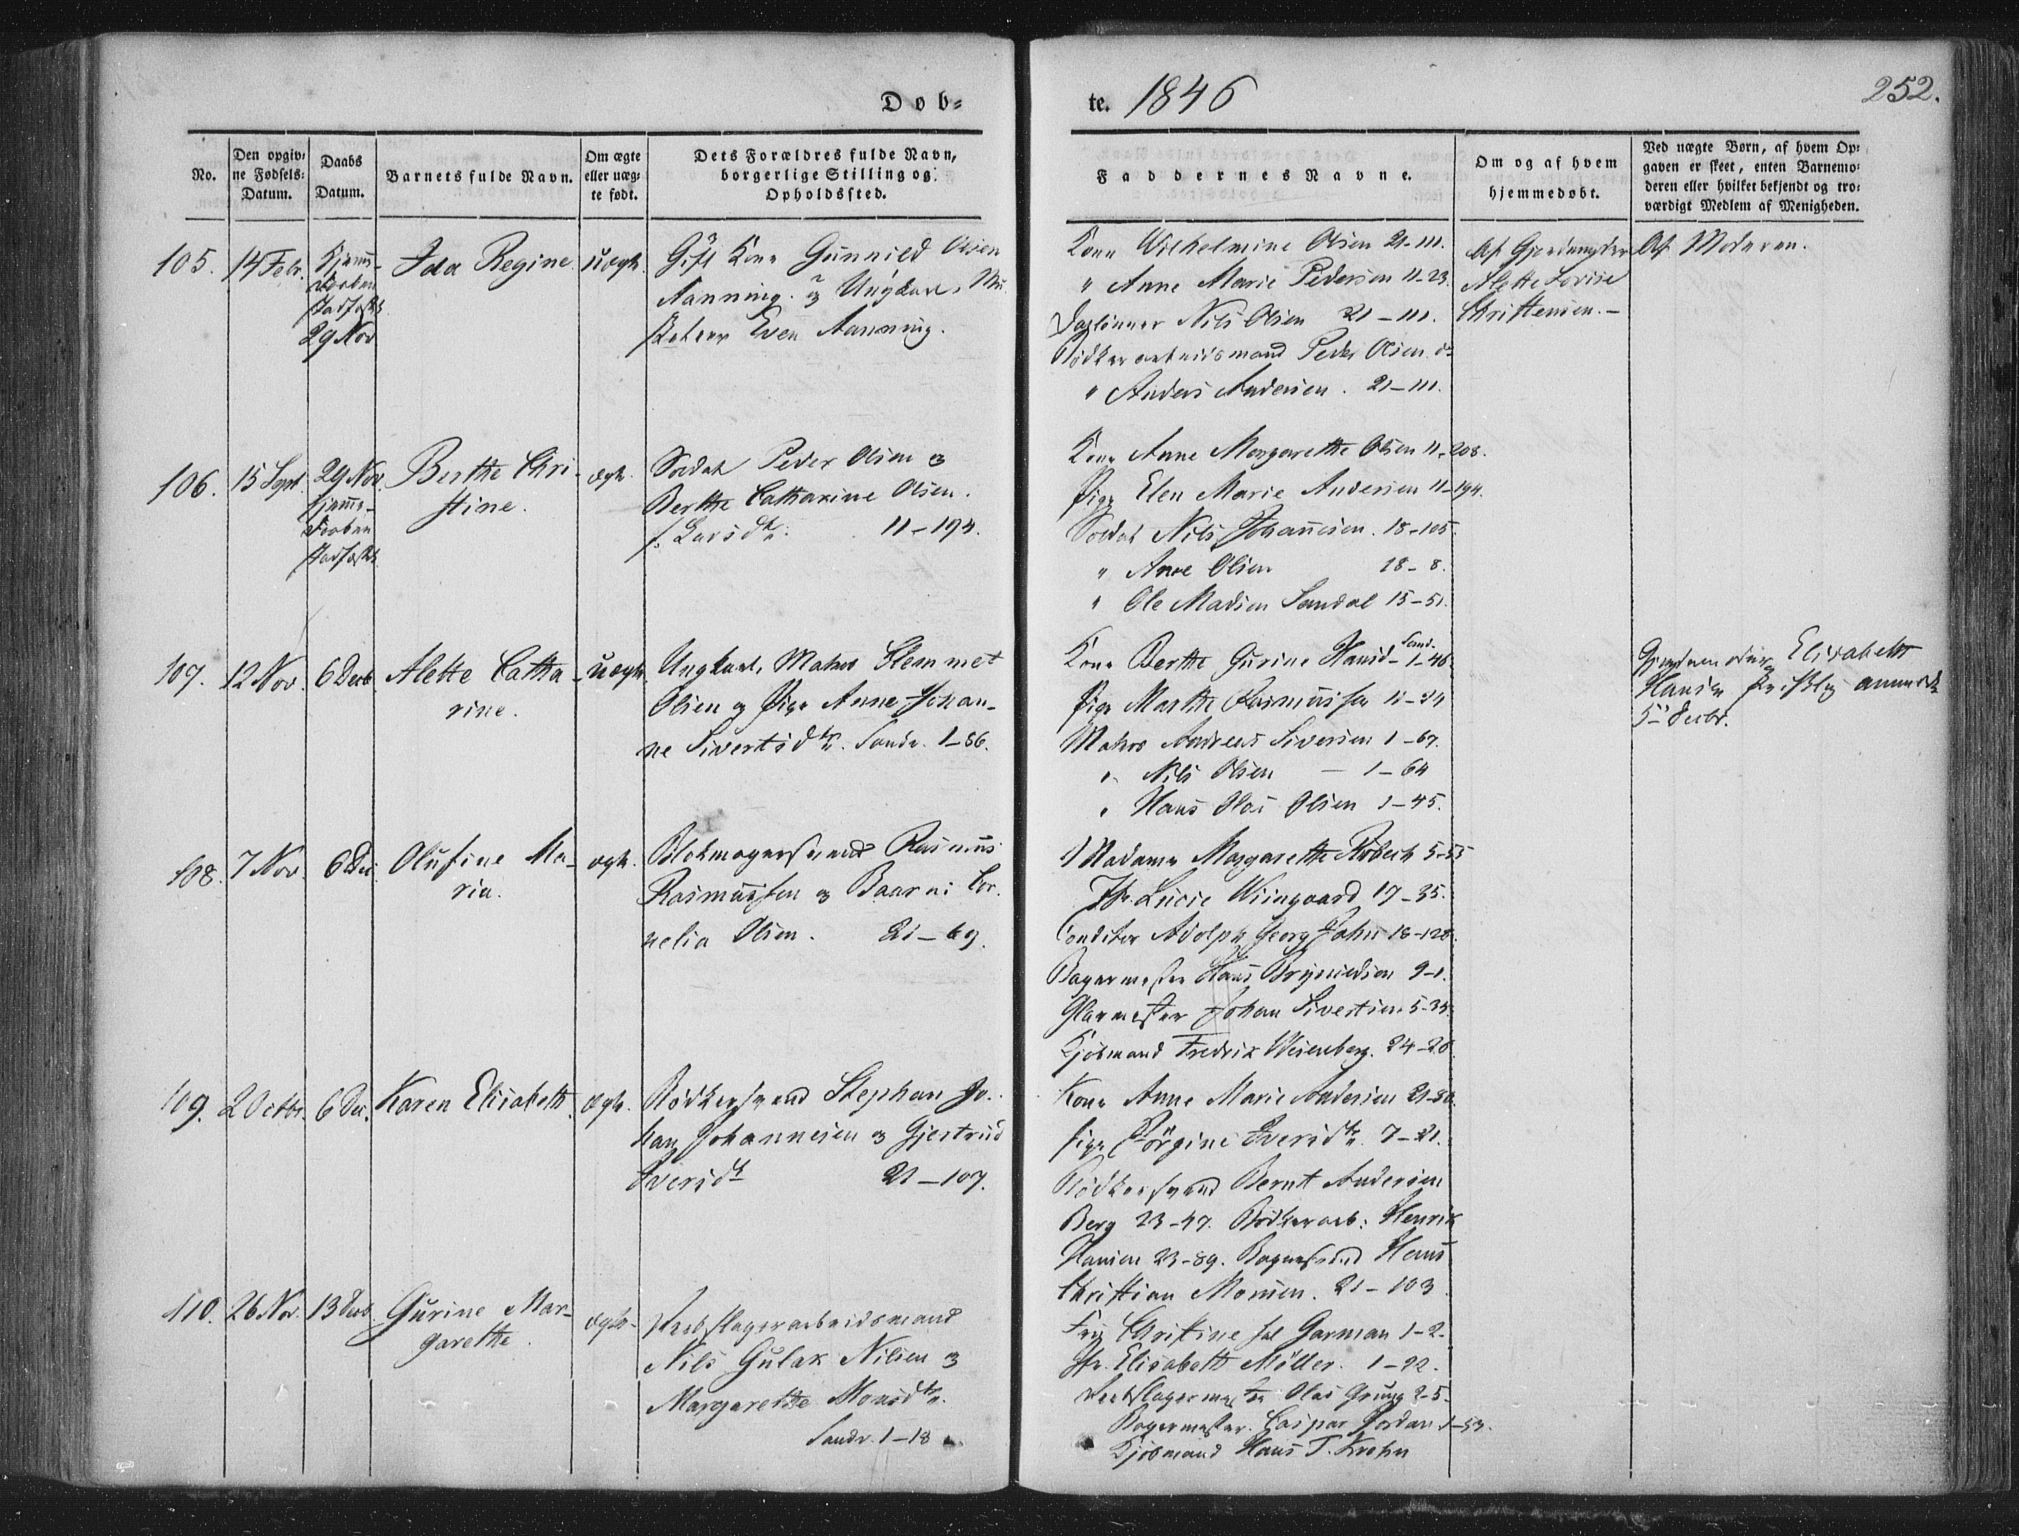 Døb=
te. 1846
252.
No.
Den opgiv=
ne Fødsels=
Datum.
Daabs
Datum.
Barnets fulde Navn.
Om ægte
eller uæg=
te født.
Dets Forældres fulde Navn,
borgerlige Stilling og
Opholdssted.
Faddernes Navne.
Om og af hvem
hjemmedøbt.
Ved uægte Børn, af hvem Op=
gaven er skeet, enten Barnemo=
deren eller hvilket bekjendt og tro=
værdigt Medlem af Menigheden.
105. 14 Febr.
Hjemme-
daaben
stadfæstet
29 Nov
Ida Regine
uægte.
Gift Kone Gunnild Olsen
Aanning. og Ungkarl,
Even Aanning.
Kone Wilhelmine Olsen 21-111.
" Anne Marie Pedersen 11-23.
Dagleiner Nils Olsen 21-111.
Bødkerarbeidsmand Peder Olsen do
" Anders Andersen. 21-111.
Af Gjordemoder
Alette Lovise
Christensen.-
Af Moderen.
106. 15 Sept.
29 Nov.
Hjemme-
daaben
stadfæstet
Berthe Chri-
stine.
ægte.
Soldat Peder Olsen og
Berthe Catharine Olsen.
f. Larsdtr. 11-194.
Kone Anne Margarethe Olsen 11-208.
Pige Elen Marie Andersen 11-194.
Soldat Nils Johannesen. 18-105.
" Arne Olsen 18-8.
" Ole Madsen Sandal 15-51.
107. 12 Nov. 6 Decb.
Alette Catha-
rine.
uægte.
Ungkarl, Matros Clemmet
Olsen og Pige Anne Johan-
ne Sivertsdtr. Sandv. 1-86.
Kone Berthe Gurine Hansd. Sandv. 1-46
Pige Marthe Rasmussen 11-34
Matros Andreas Siversen 1-67.
" Nils Olsen - 1-64
" Hans Olai Olsen 1-45.
Gjordemoder Elisabeth
Hansen skriftlig anmeldt
5te Decbr.
108. 7 Nov. 6 Dec.
Olufine Ma-
rie.
ægte.
Blokmagersvend Rasmus
Rasmussen og Baarni Cor-
nelia Olsen. 21-69.
Madame Margarethe Robech 5-55
Jfr. Lucie Wiingaard 17-35.
Conditor Adolph Georg Jahn 18-128.
Bagermester Hans Brynildsen 9-1.
Glarmester Johan Sivertsen 5-35.
Kjøbmand Fredrik Wesenberg. 24-20.
109. 2 Octbr. 6 Dec.
Karen Elisabeth.
ægte.
Bødkersvend Stephan Jo-
han Johannesen og Gjertrud
Iversdtr 21-107.
Kone Anne Marie Andersen 21-80.
Pige Jörgine Iversdtr. 7-21.
Bødkersvend Bernt Andersen
Berg 23-47. Bødkerarb: Henrik
Hansen 23-89. Bagersvend Hans
Christian Monsen. 21-103
110. 26 Nov. 13 Decb.
Gurine Mar-
garethe.
ægte.
Reebslagerarbeidsmand
Nils Gulak Nilsen og
Margarethe Monsdtr.
Sandv. 1-18
Frøk Christine sal Garman 1-2.
Jfr. Elisabeth Møller. 1-22.
Reebslagermester Olai Grung 2-5.
Bagermester. Caspar Jordan 1-53.
Kjøbmand Hans T. Krohn